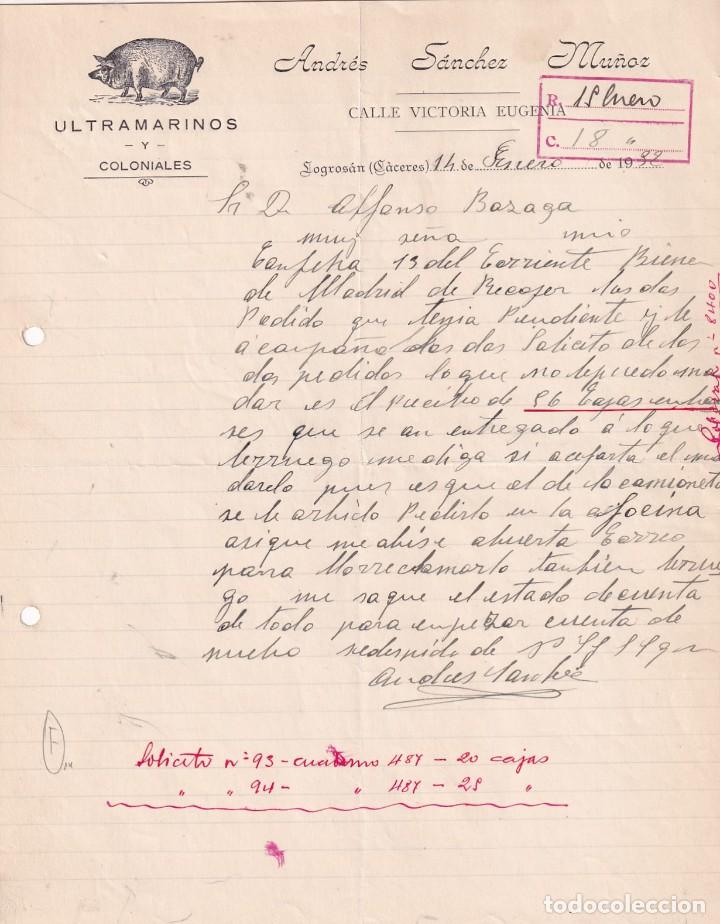 Andrés Sánchez Muñoz
CALLE VICTORIA EUGENIA
ULTRAMARINOS
- Y -
COLONIALES
R. 15 Enero
C. 18 "
Logrosán (Càceres) 14 de Enero de 1932
Sr D Alffonso Bazaga
muy seña mio
Con fecha 13 del Corriente Biene
de Madrid de Recojer los dos
Pedido que tenia Pendiente y le
acompaño los dos Solicito de los
dos pedidos lo que no le puedo man
dar es el recibo de 56 Cajas enba
ses que se an entregado á lo que
le rruego me diga si acserta el man
darelo pues es que el de la camioneta
se le a rbido Pedirlo en la offocina
asi que me abise abuerta Correo
para llo rreclamarlo tanbien le rrue
go me saque el estado de cuenta
de todo para enpezar cuenta de
nuebo sedespide de
Andres Sanchez
F
Solicito nº 93 - cuaderno 487 - 20 cajas
" " 94 - " 487 - 25 "